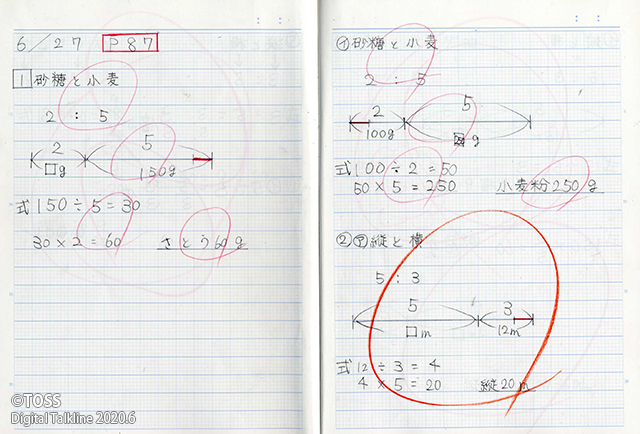 6/27 P87
1 砂糖と小麦
2 : 5
2 5
□g 150g
式150÷5=30
30×2=60 さとう60g
イ 砂糖と小麦
2 : 5
2 5
100g □g
式100÷2=50
50×5=250 小麦粉250g
② ア 縦と横
5 : 3
5 3
□m 12m
式12÷3=4
4×5=20 縦20m
©TOSS
Digital Talkline 2020.6